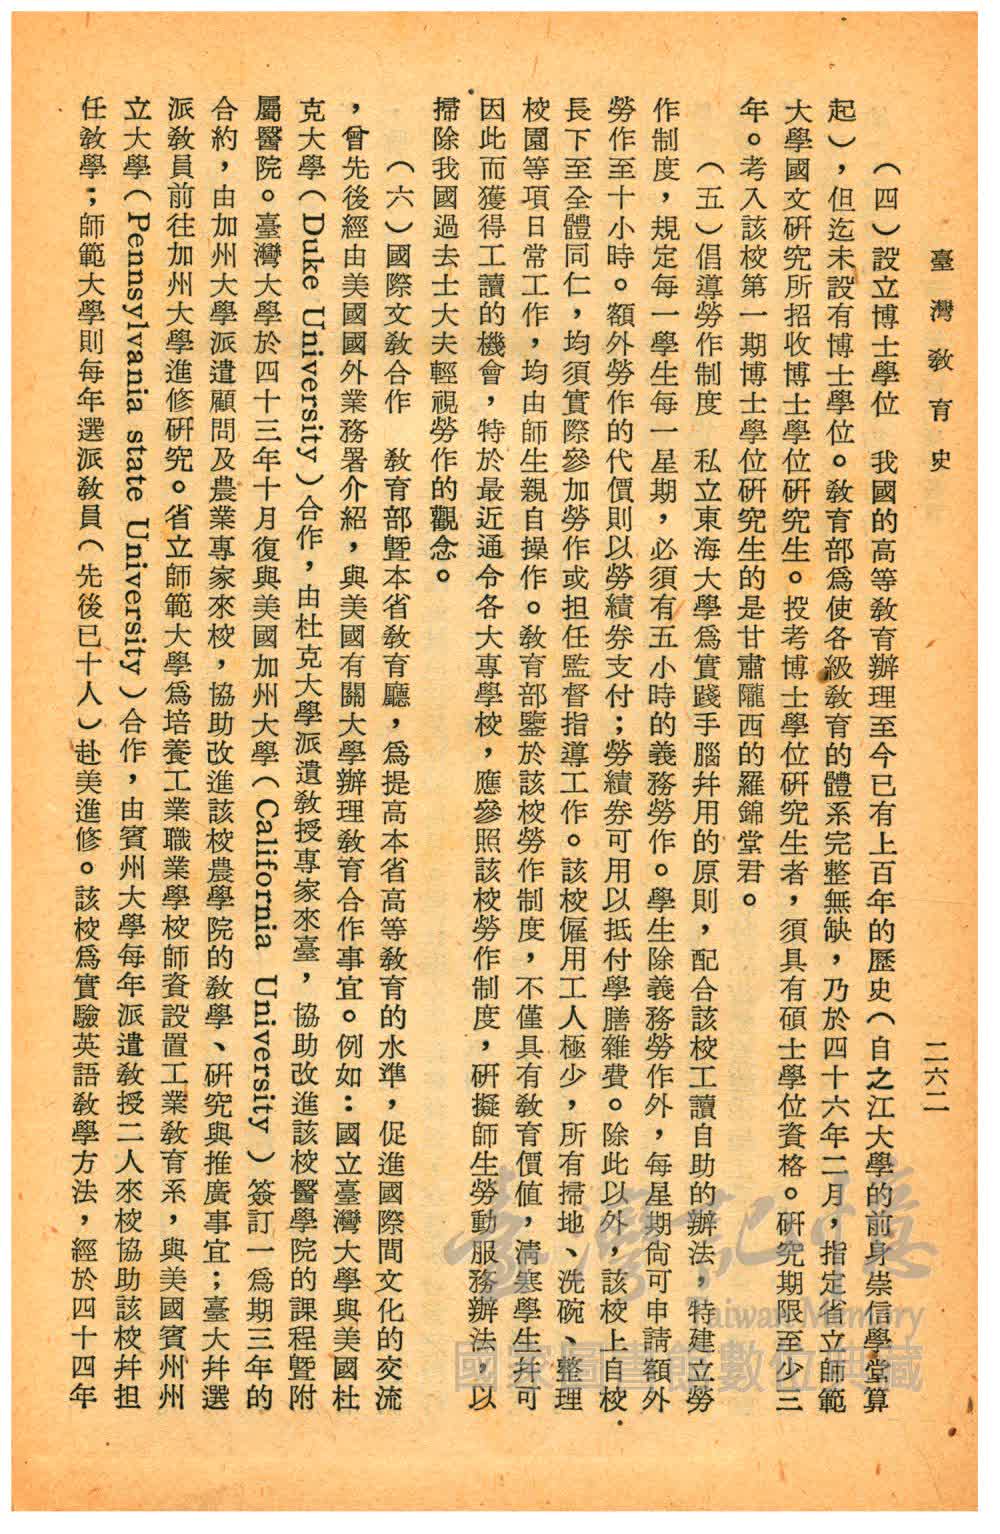 臺灣教育史
二六二
（四）設立博士學位　我國的高等教育辦理至今已有上百年的歷史（自之江大學的前身崇信學堂算
起），但迄未設有博士學位。教育部爲使各級教育的體系完整無缺，乃於四十六年二月，指定省立師範
大學國文硏究所招收博士學位硏究生。投考博士學位硏究生者，須具有碩士學位資格。硏究期限至少三
年。考入該校第一期博士學位硏究生的是甘肅隴西的羅錦堂君。
（五）倡導勞作制度　私立東海大學爲實踐手腦幷用的原則，配合該校工讀自助的辦法，特建立勞
作制度，規定每一學生每一星期，必須有五小時的義務勞作。學生除義務勞作外，每星期尙可申請額外
勞作至十小時。額外勞作的代價則以勞績券支付；勞績券可用以抵付學膳雜費。除此以外，該校上自校
長下至全體同仁，均須實際參加勞作或担任監督指導工作。該校僱用工人極少，所有掃地、洗碗、整理
校園等項日常工作，均由師生親自操作。教育部鑒於該校勞作制度，不僅具有教育價值，淸寒學生幷可
因此而獲得工讀的機會，特於最近通令各大專學校，應參照該校勞作制度，硏擬師生勞動服務辦法，以
掃除我國過去士大夫輕視勞作的觀念。
（六）國際文教合作　教育部曁本省教育廳，爲提高本省高等教育的水準，促進國際間文化的交流
，曾先後經由美國國外業務署介紹，與美國有關大學辦理教育合作事宜。例如：國立臺灣大學與美國杜
克大學（Duke University）合作，由杜克大學派遣教授專家來臺，協助改進該校醫學院的課程曁附
屬醫院。臺灣大學於四十三年十月復與美國加州大學（California University）簽訂一爲期三年的
合約，由加州大學派遣顧問及農業專家來校，協助改進該校農學院的教學、硏究與推廣事宜；臺大幷選
派教員前往加州大學進修硏究。省立師範大學爲培養工業職業學校師資設置工業教育系，與美國賓州州
立大學（Pennsylvania state University）合作，由賓州大學每年派遣教授二人來校協助該校幷担
任教學；師範大學則每年選派教員（先後已十人）赴美進修。該校爲實驗英語教學方法，經於四十四年
臺灣記憶
Taiwan Memory
國家圖書館數位典藏